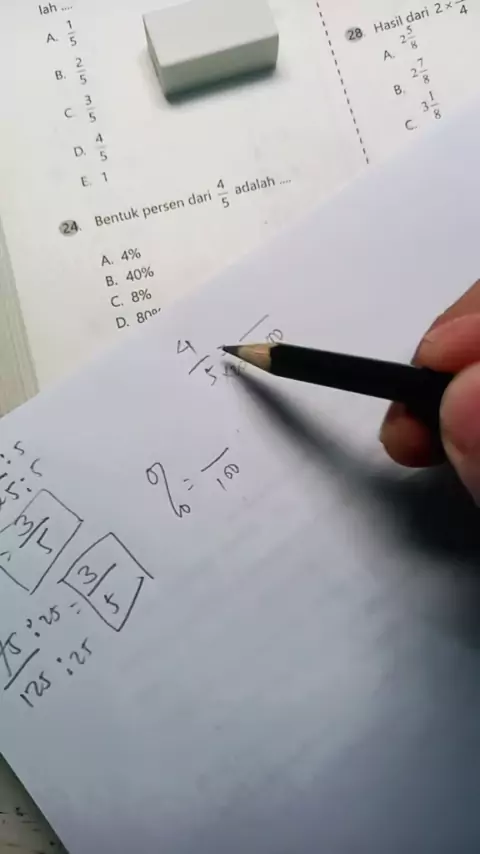 lah ....
A. 1/5
B. 2/5
C. 3/5
D. 4/5
E. 1
24. Bentuk persen dari 4/5 adalah ....
A. 4%
B. 40%
C. 8%
D. 80%
28. Hasil dari 2 ×
A. 2 5/8
B. 2 7/8
C. 3 1/8
4/5
% = /100
: 5
5 : 5
= 3/5
75 : 25 = 3/5
125 : 25